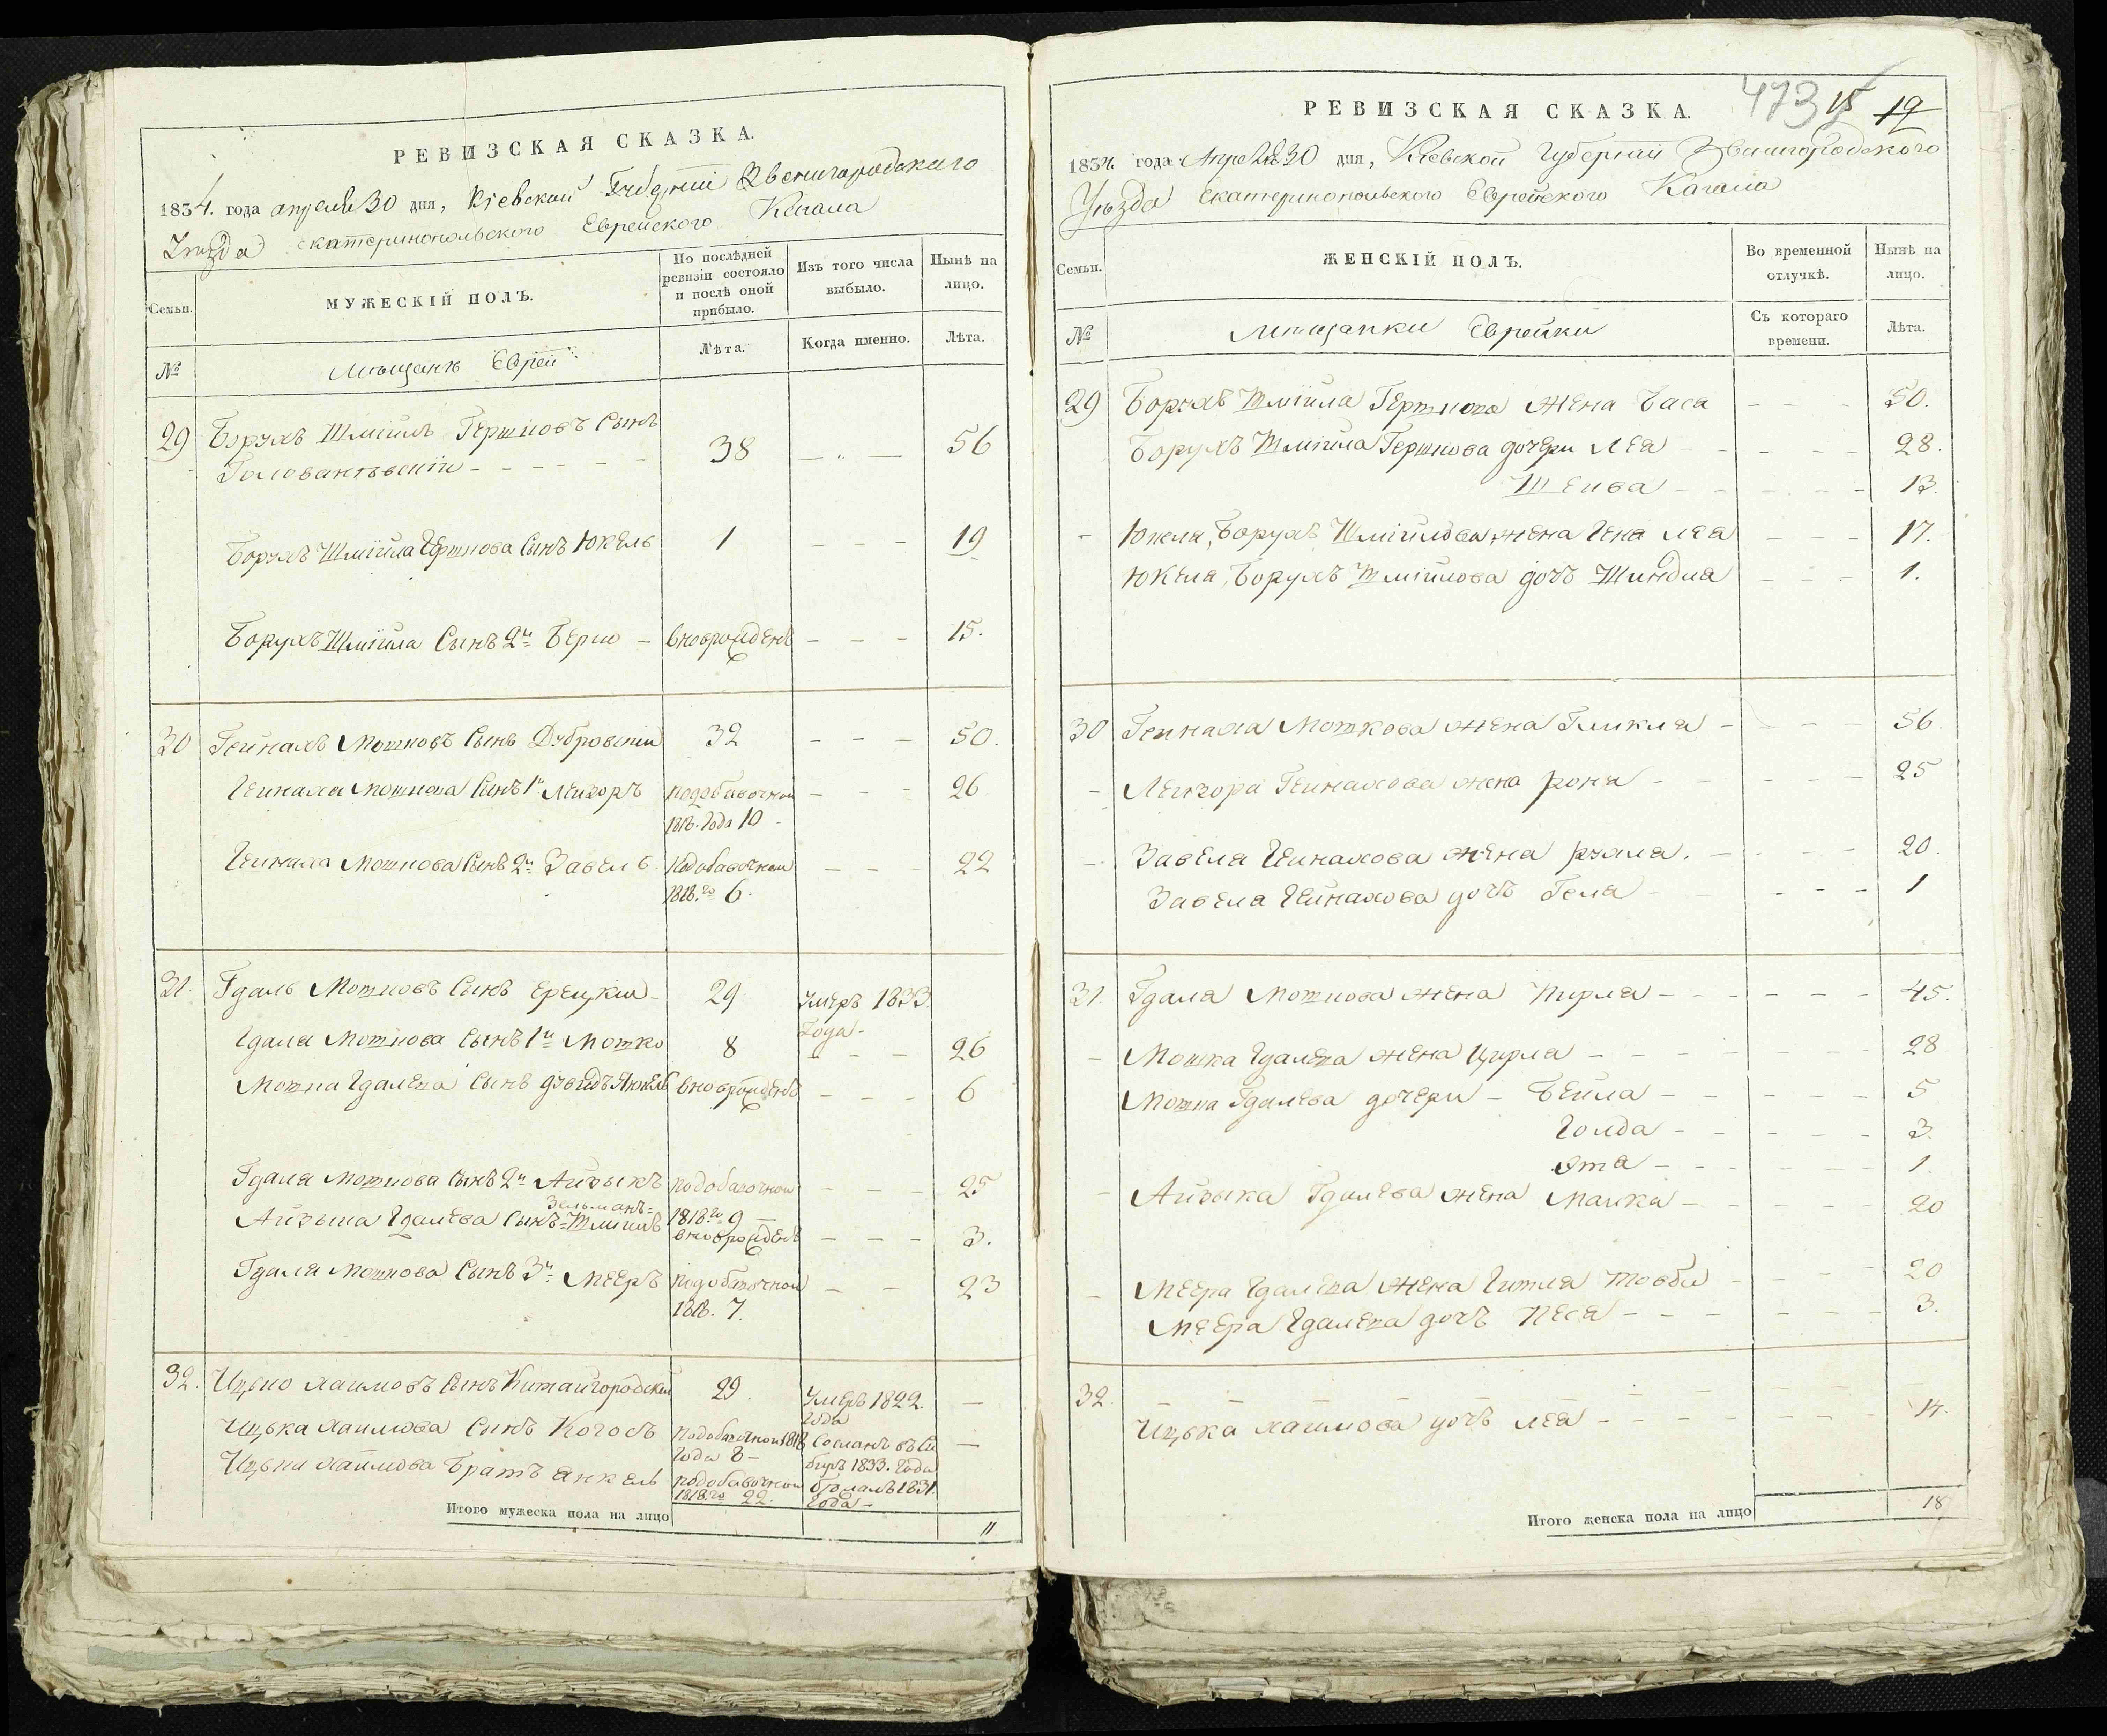 РЕВИЗСКАЯ СКАЗКА.
1834. года апреля 30 дня, Кіевской Губерніи Звенигородскаго
Уѣзда Екатеринопольского Еврейского Кагала
Семьи.
МУЖЕСКІЙ ПОЛЪ.
По послѣдней ревизіи состояло и послѣ оной прибыло.
Изъ того числа выбыло.
Нынѣ на лицо.
№
Мещане Евреи
Лѣта.
Когда именно.
Лѣта.
29 Борухъ Шмiилъ Гершковъ Сынъ
Голованѣвскій - - - - - 38 - - - 56
Борухъ Шмiила Гершкова Сынъ Юкель 1 - - - 19
Борухъ Шмiила Сынъ 2й Берко - вноврожденъ - - - 15.
30 Гейнахъ Мошковъ Сынъ Дубровскій 32 - - - 50.
Гейнаха Мошкова Сынъ 1й Лейзоръ подобавочной - - - 26.
1818. Года 10 -
Гейнаха Мошкова Сынъ 2й Завель подобавочной - - - 22
1818.го 6.
31. Гдаль Мошковъ Сынъ Ерецкій - 29 Умеръ 1833.
Года -
Гдаля Мошкова Сынъ 1й Мошко 8 - - - 26
Мошка Гдалева Сынъ Дувидъ Янкель вноврожденъ - - - 6
Гдаля Мошкова Сынъ 2й Айзыкъ подобавочной - - - 25
Зельманъ=
Айзыка Гдалева Сынъ=Шмiилъ 1818го 9 -
вноврожденъ - - - 3.
Гдаля Мошкова Сынъ 3й Мееръ подобавочной - - 23
1818. 7.
32. Ицько Хаимовъ Сынъ Китайгородскій 29. Умеръ 1822. -
Года
Ицька Хаимова Сынъ подобавочной 1818 Сосланъ въ Си -
Года 8 - биръ 1833. Года
Ицька Хаимова Братъ Янкель подобавочной 1831.
1818го 22. Года -
Итого мужеска пола на лицо 11
473 15 19
РЕВИЗСКАЯ СКАЗКА.
1834. года Апреля 30 дня, Кіевской Губерніи Звенигородского
Уѣзда Екатеринопольского Еврейского Кагала
Семьи.
ЖЕНСКІЙ ПОЛЪ.
Во временной отлучкѣ.
Нынѣ на лицо.
№
Мещанки Еврейки
Съ котораго времени.
Лѣта.
29 Борухъ Шмiила Гершкова жена Баса - - - 50.
Борухъ Шмiила Гершкова дочери Леа - - - - 28.
Шейва - - - - - 13.
- Юкеля, Борухъ Шмiилова жена Гена Леа - - - 17.
Юкеля, Борухъ Шмiилова дочь Шиндля - - - 1.
30 Гейнаха Мошкова жена Гликля - - - - 56
- Лейзора Гейнахова жена Роня - - - - - 25
- Завеля Гейнахова жена Рухля. - - - - 20.
Завеля Гейнахова дочь Геля - - - - - 1
31 Гдаля Мошкова жена Пирля - - - - - - 45.
- Мошка Гдалева жена Цирля - - - - - - 28
Мошка Гдалева дочери - Бейла - - - - - 5
Голда - - - - 3.
Эта - - - - - 1.
- Айзыка Гдалева жена Малка - - - - - 20
- Меера Гдалева жена Гитля Товба - - - - 20
Меера Гдалева дочь Песя - - - - - - 3.
32. - - - - - - - -
Ицька Хаимова дочь Леа - - - - - - - 14.
Итого женска пола на лицо 18